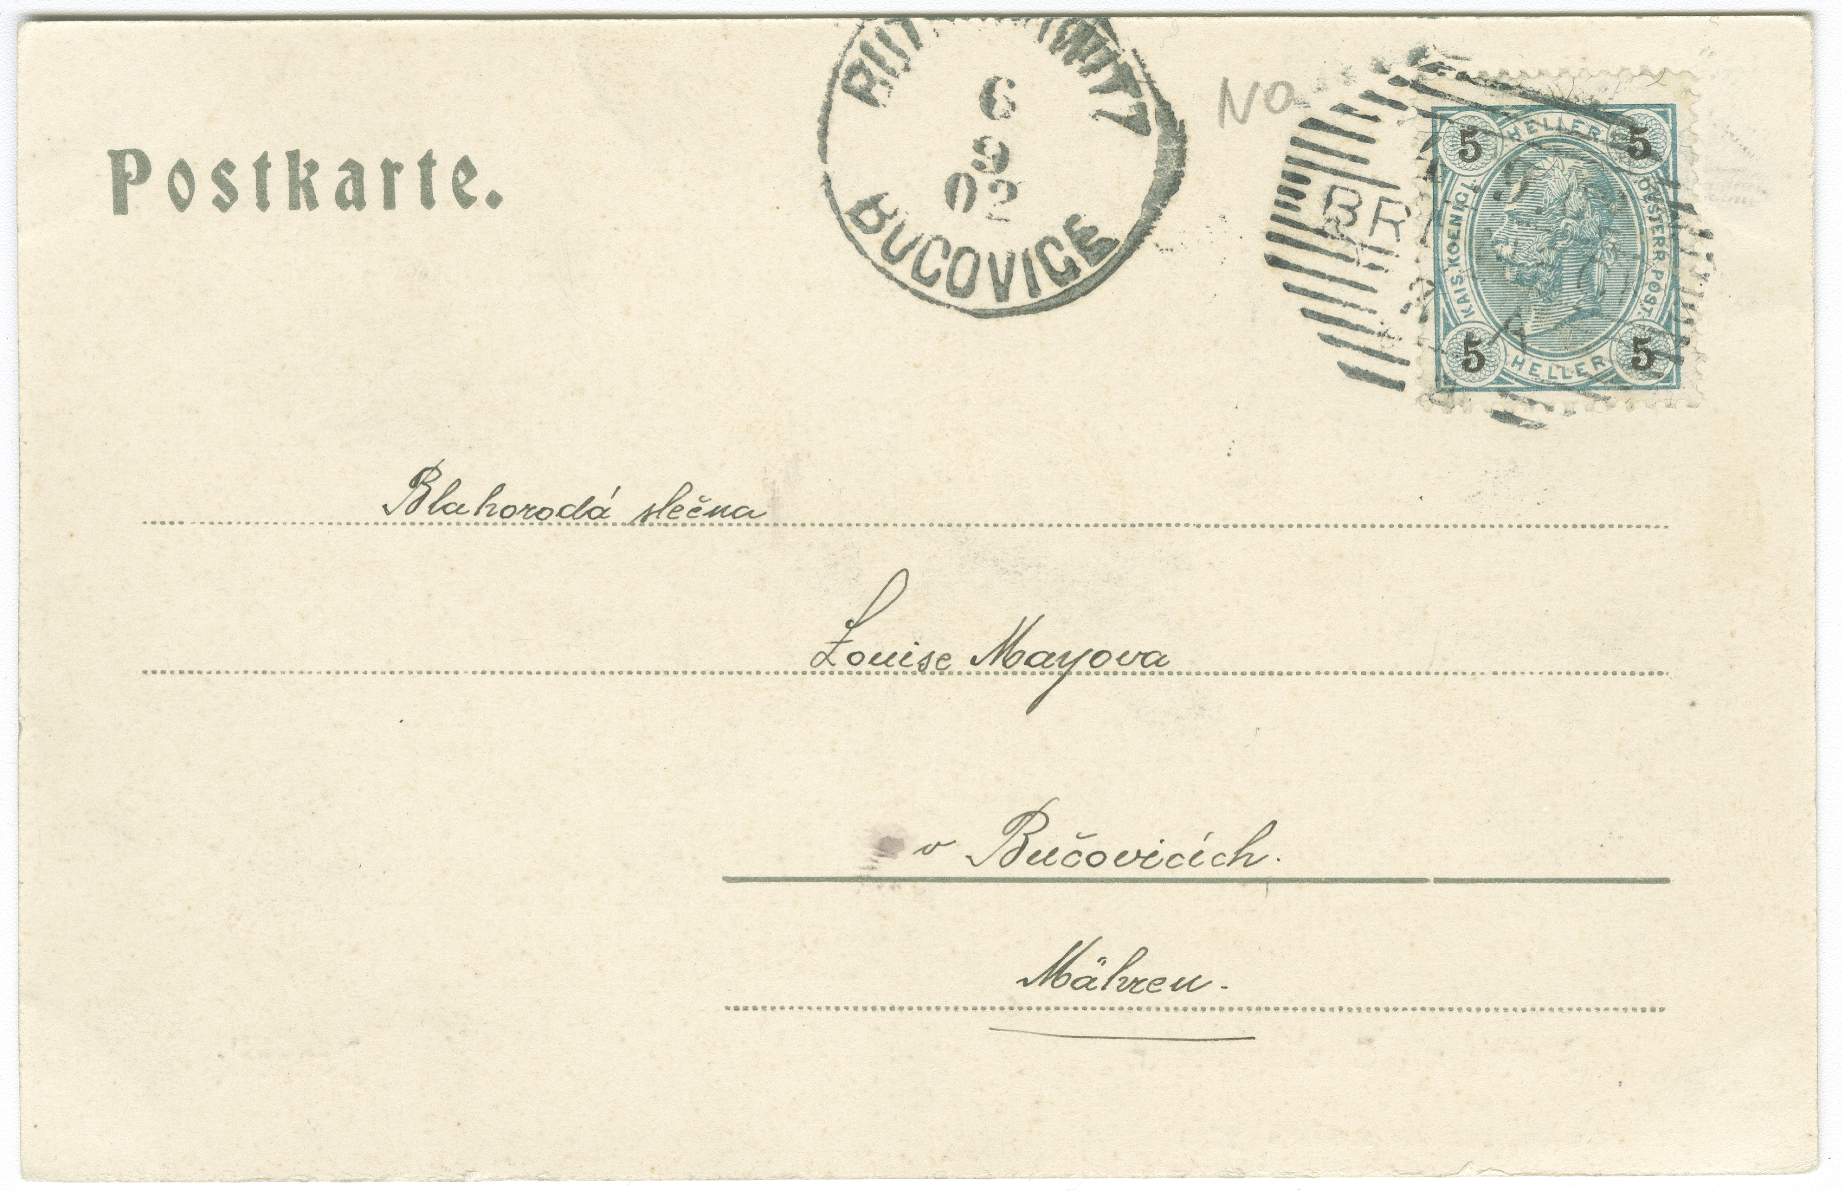 Postkarte.
6
9
02
BUCOVICE
NO
BR
5 HELLER 5
KAIS. KOENIGL. OESTERR. POST.
5 HELLER 5
Blahorodá slečna
Louise Mayova
v Bučovicích.
Mähren.